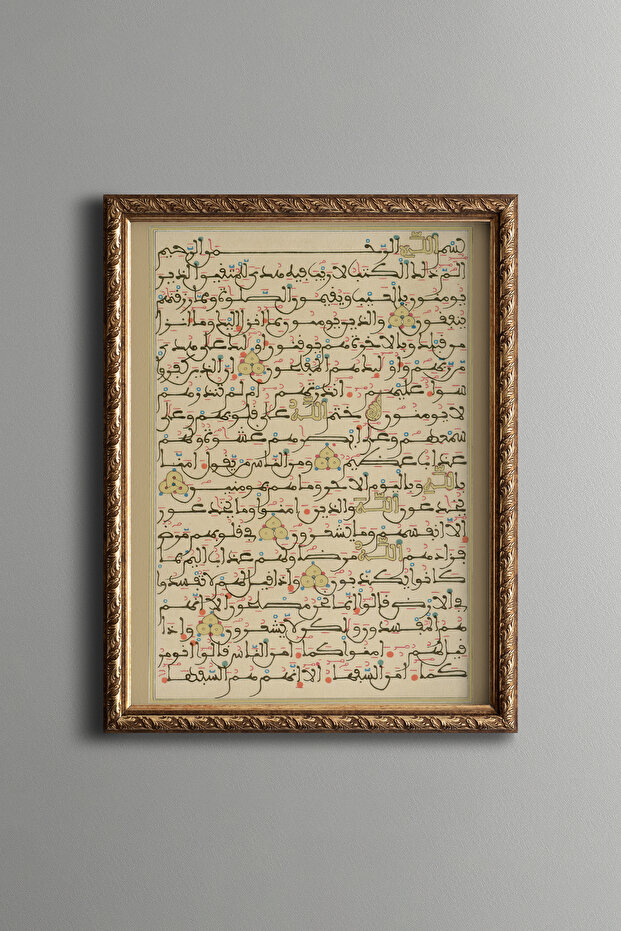 بسم الله الرحمن الرحيم
الم ذلك الكتب لا ريب فيه هدى للمتقين الذين
يومنون بالغيب ويقيمون الصلوة ومما رزقنهم
ينفقون والذين يومنون بما انزل اليك وما انزل
من قبلك وبالاخرة هم يوقنون اولئك على هدى
من ربهم واولئك هم المفلحون ان الذين كفروا
سواء عليهم انذرتهم ام لم تنذرهم
لا يومنون ختم الله على قلوبهم وعلى
سمعهم وعلى ابصرهم غشوة ولهم
عذاب عظيم ومن الناس من يقول امنا
بالله وباليوم الاخر وما هم بمومنين
يخدعون الله والذين امنوا وما يخدعون
الا انفسهم وما يشعرون في قلوبهم مرض
فزادهم الله مرضا ولهم عذاب اليم بما
كانوا يكذبون واذا قيل لهم لا تفسدوا
في الارض قالوا انما نحن مصلحون الا انهم
هم المفسدون ولكن لا يشعرون واذا
قيل لهم امنوا كما امن الناس قالوا انومن
كما امن السفهاء الا انهم هم السفهاء